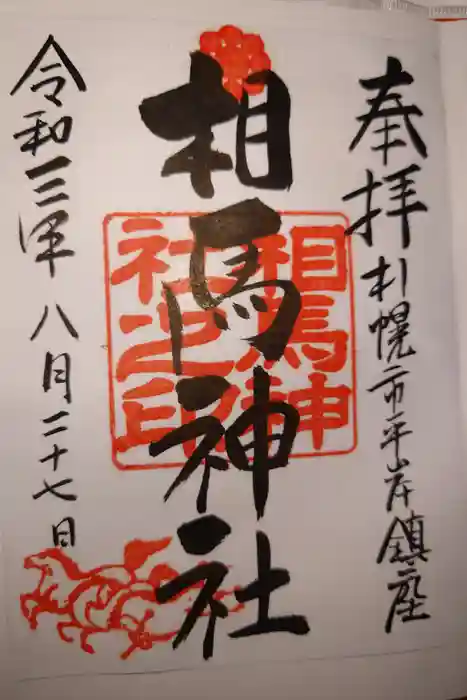 奉拝
札幌市平岸鎮座
相馬神社
相馬神
社之印
令和三年八月二十七日